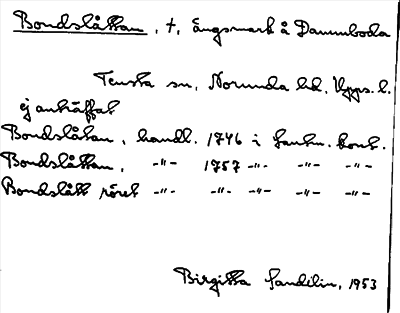 Bondslåttan, †, ängsmark å Dammboda
Tensta sn, Norunda hd, Upps. l.
ej anträffat
Bondslåtan, handl. 1746 i lantm. kont.
Bondslåttan, -"- 1757 -"- -"- -"-
Bondslått röret -"- -"- -"- -"- -"-
Birgitta Sandelin, 1953